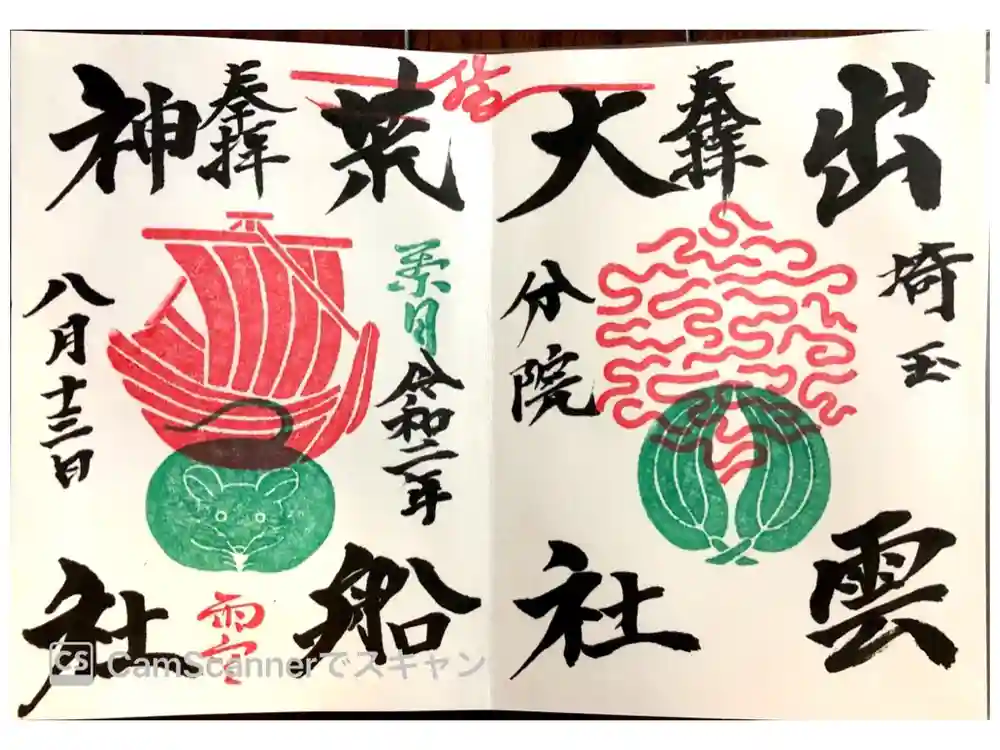 出雲
埼玉
奉拝
大社
分院
荒船
奉拝
葉月 令和二年
神社
八月十三日
CamScannerでスキャン